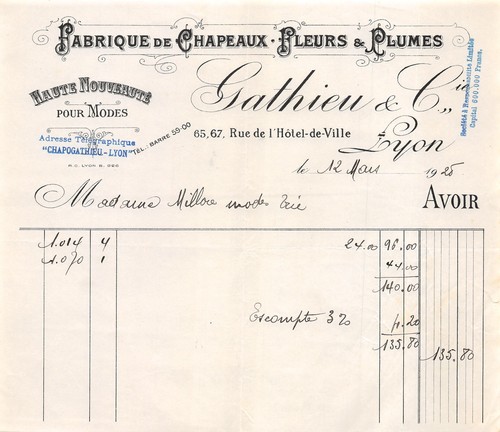 FABRIQUE DE CHAPEAUX · FLEURS & PLUMES
HAUTE NOUVEAUTÉ
POUR MODES
Gathieu & Cie
Société à Responsabilité Limitée
Capital 600.000 Francs.
65, 67, Rue de l'Hôtel-de-Ville
Lyon
Adresse Télégraphique
"CHAPOGATHIEU-LYON"
TÉL.: BARRE 55-00
R. C. LYON B.
le 12 Mars 1928
Madame modes
AVOIR
1.014 4 24.00 96.00
1.070 1 44.00
140.00
Escompte 3% 4.20
135.80 135.80